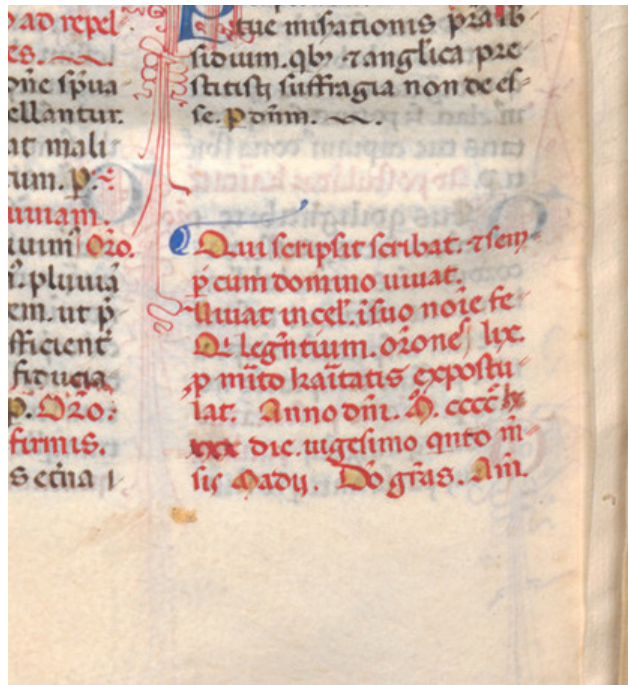 ad repel
es.
one spūa
ellantur.
at mali
tum. p.
uiuam.
uium Oro.
pluuiā
em. ut p̄
fficient̄
fiducia
p. Oro:
firmis.
s etīia i
tue misationis
sidium. qb; ⁊ anglica pre
stitisti suffragia non de es-
se. P dnm.
Qui scripsit scribat. ⁊ sem-
p̄ cum domino uiuat.
Uiuat in cel. i suo noīe fe
Q legn̄tium. orōnes lix.
p mīto kaītatis expostu-
lat. Anno dm̄. M. cccc
xxx die. uigesimo qnto m̄
sis Madij. Dō grās. Am̄.